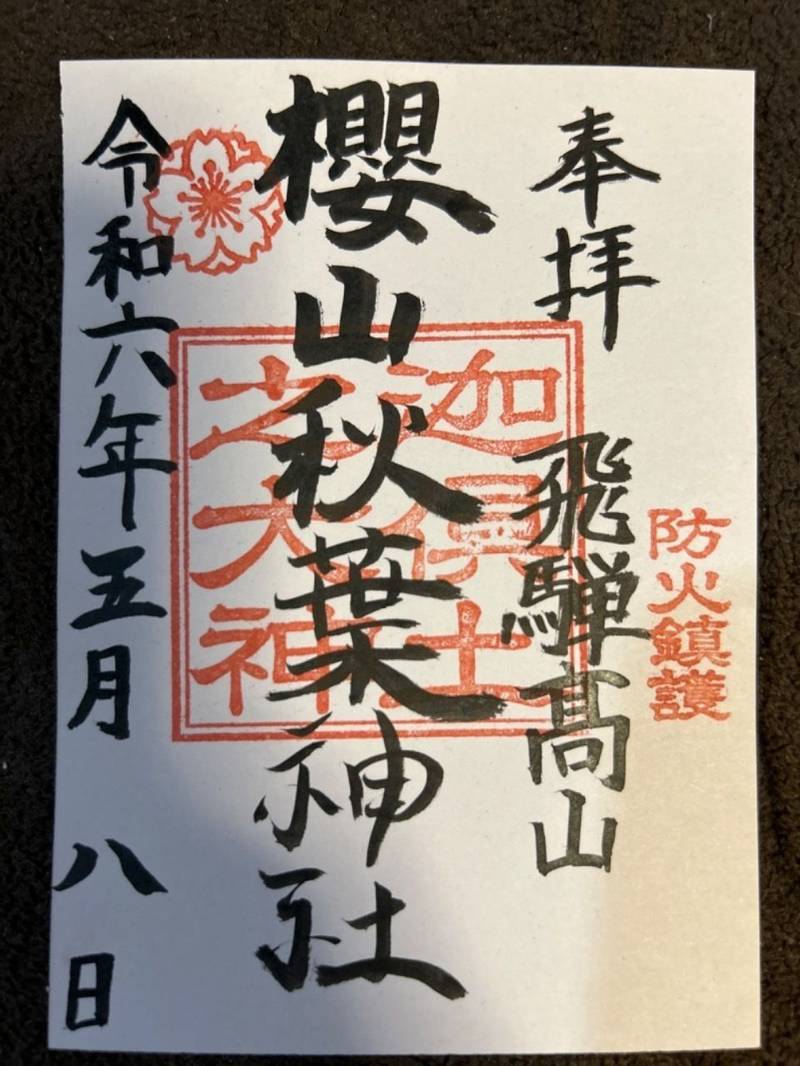 防火鎮護
奉拝 飛騨髙山
櫻山秋葉神社
迦倶土
之大神
令和六年五月八日